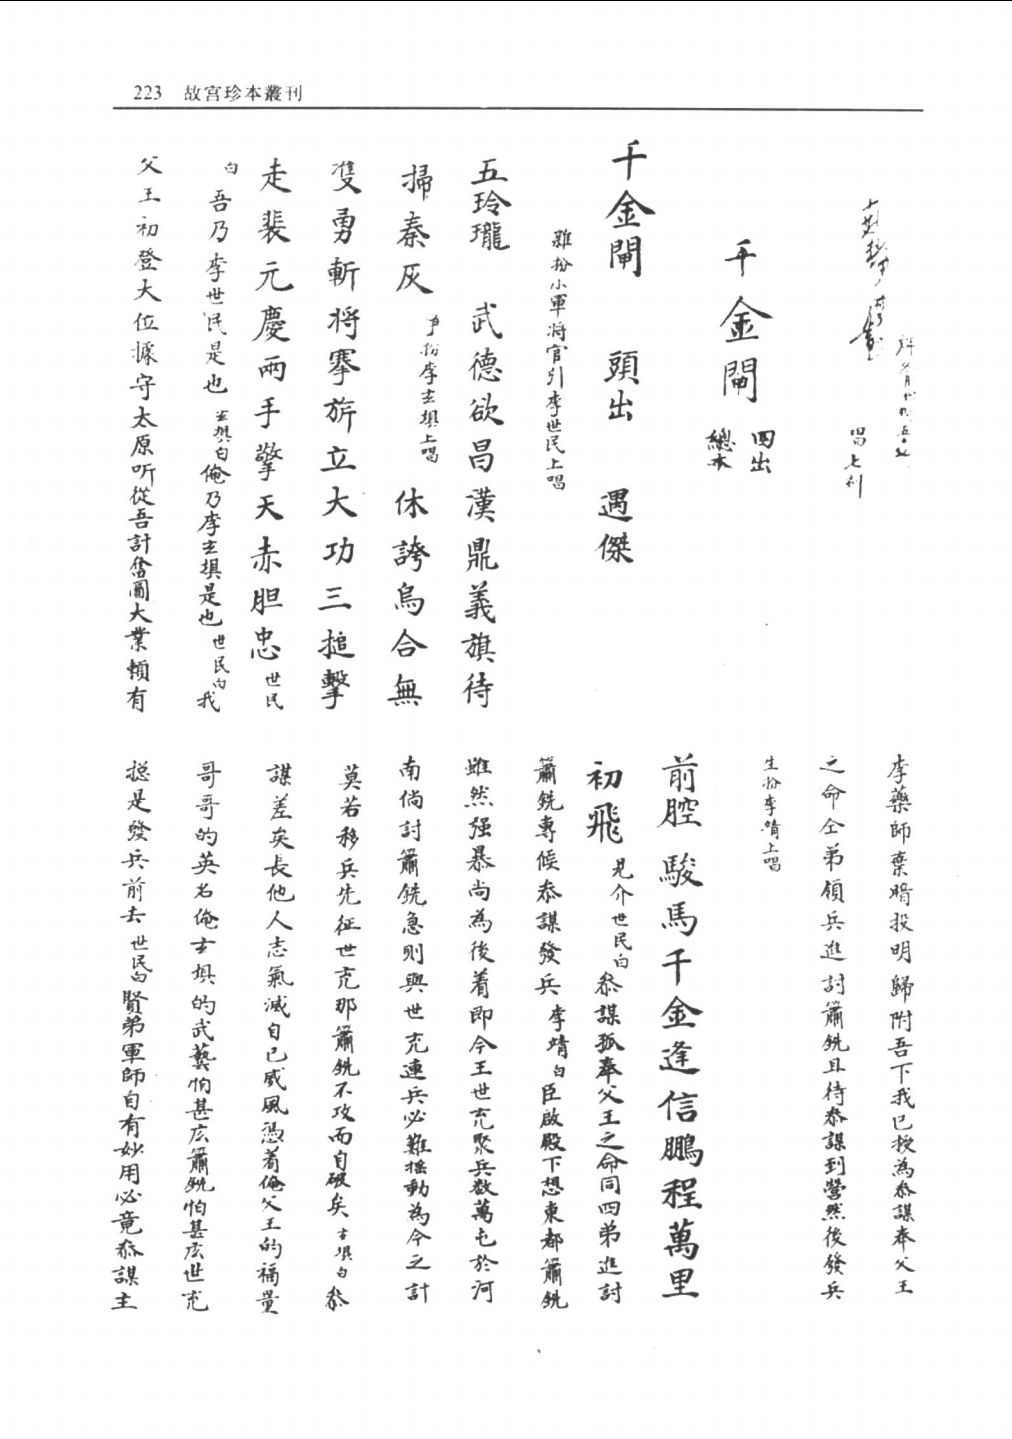 223 故宮珍本叢刊
唱七刻
千金閘 四出 總本
千金閘 頭出 遇傑
雜扮小軍將官引李世民上唱
五玲瓏 武德欲昌漢鼎義旗待
掃秦灰 淨扮李玄㻑上唱 休誇烏合無
雙勇斬將搴旂立大功三搥擊
走裴元慶兩手擎天赤胆忠 世民
白 吾乃李世民是也 玄㻑白 俺乃李玄㻑是也 世民白 我
父王初登大位據守太原听從吾計啚圖大業頓有
李藥師棄暗投明歸附吾下我已授為叅謀奉父王
之命仝弟領兵進討簫銑且待叅謀到營然後發兵
生扮李靖上唱
前腔 駿馬千金逢信鵬程萬里
初飛 見介世民白 叅謀孤奉父王之命同四弟進討
簫銑專候叅謀發兵 李靖白 臣啟殿下想東都簫銑
雖然强暴尚為後着即今王世充聚兵数萬屯於河
南倘討簫銑急則與世充連兵必難搖動為今之計
莫若移兵先征世充那簫銑不攻而自破矣 玄㻑白 叅
謀差矣長他人志氣滅自己威風憑着俺父王的福量
哥哥的英名俺玄㻑的武藝怕甚広簫銑怕甚広世充
摠是發兵前去 世民白 賢弟軍師自有妙用必竟叅謀主